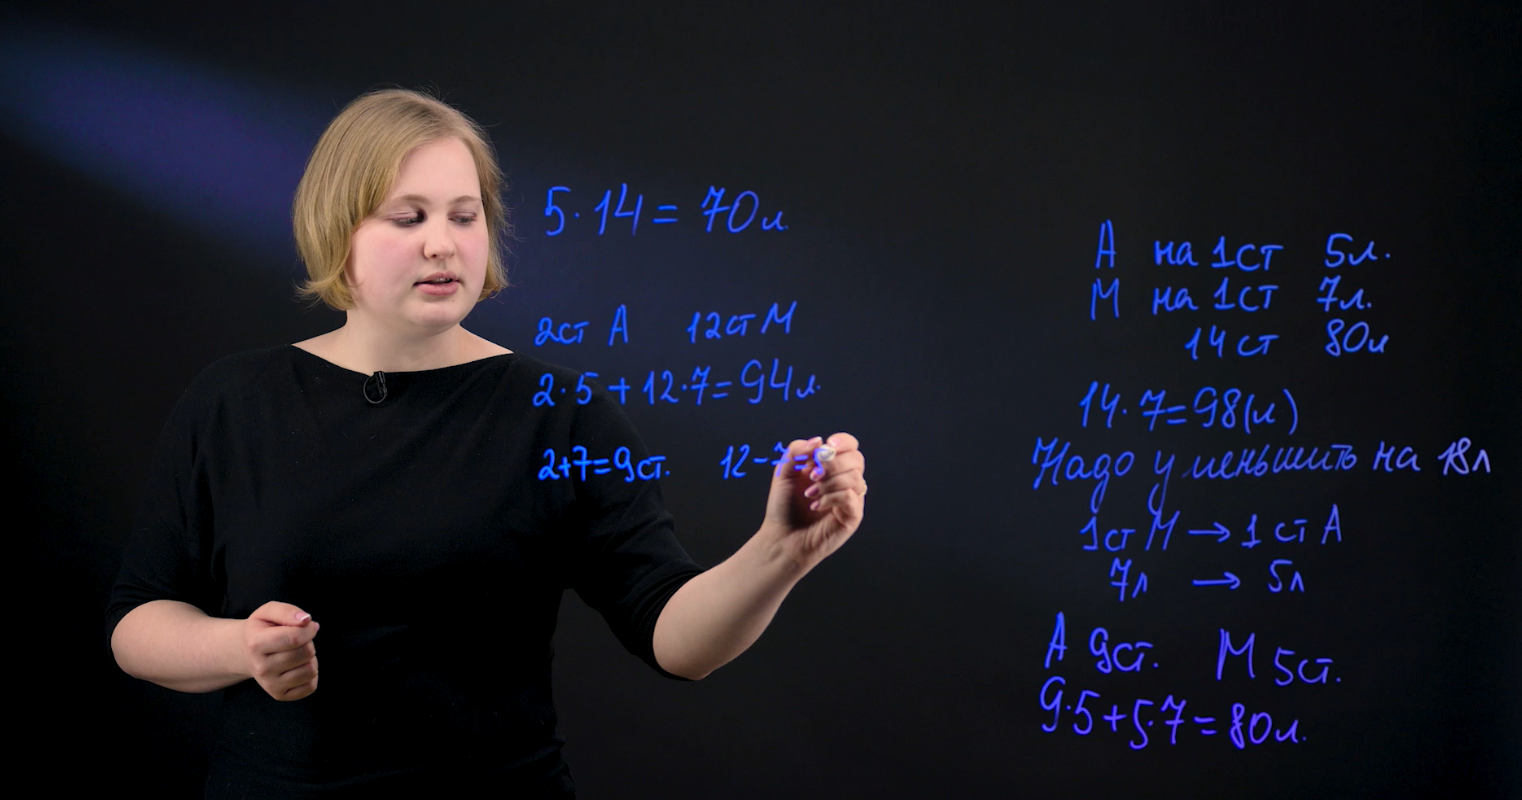 5·14=70л.
2ст А 12ст М
2·5+12·7=94л.
2+7=9ст. 12-7=
А на 1ст 5л.
М на 1ст 7л.
14ст 80л
14·7=98(л)
Надо уменьшить на 18л
1ст М → 1 ст А
7л → 5л
А 9ст. М 5ст.
9·5+5·7=80л.